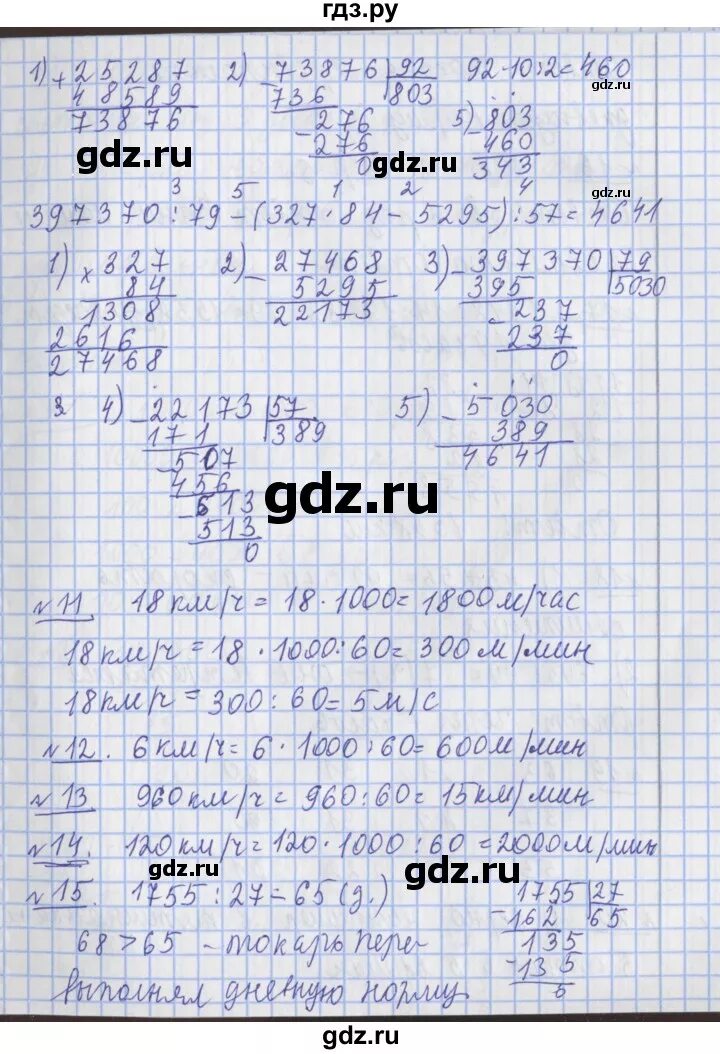 гдз.ру
1) + 25287 2) - 73876 |92 92·10:2=460
48589 736 803
73876 - 276 5) - 803
276 460
0 343
gdz.ru gdz.ru gdz.ru
3 5 1 2 4
397370 : 79 - (327·84 - 5295) : 57 = 4641
gdz.ru
1) × 327 2) - 27468 3) - 397370 |79
84 5295 395 5030
1308 22173 - 237
2616 237
27468 0
3 4) - 22173 |57 5) - 5030
171 389 389
- 507 4641
456
- 513
513
0
gdz.ru gdz.ru
№11. 18 км/ч = 18·1000 = 1800 м/час
gdz.ru
18 км/ч = 18·1000:60 = 300 м/мин
18 км/ч = 300:60 = 5 м/с
gdz.ru
№12. 6 км/ч = 6·1000:60 = 600 м/мин
№13 960 км/ч = 960:60 = 15 км/мин
gdz.ru
№14. 120 км/ч = 120·1000:60 = 2000 м/мин
gdz.ru gdz.ru
№15. 1755:27 = 65 (д.) - 1755 |27
162 65
68 > 65 - токарь пере- - 135
135
выполнял дневную норму. 0
gdz.ru gdz.ru
gdz.ru